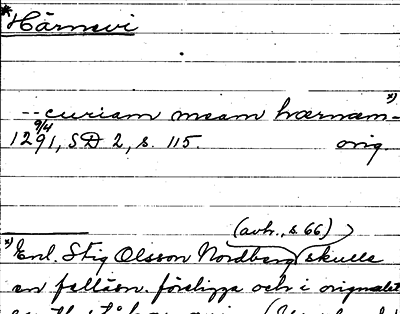 *Härnevi
--curiam meam hærnæm-
x)
9/4
1291, SD 2, s. 115. orig.
(avh., s. 66)
x) Enl. Stig Olsson Nordberg skulle
en felläsn. föreligga och i originalet